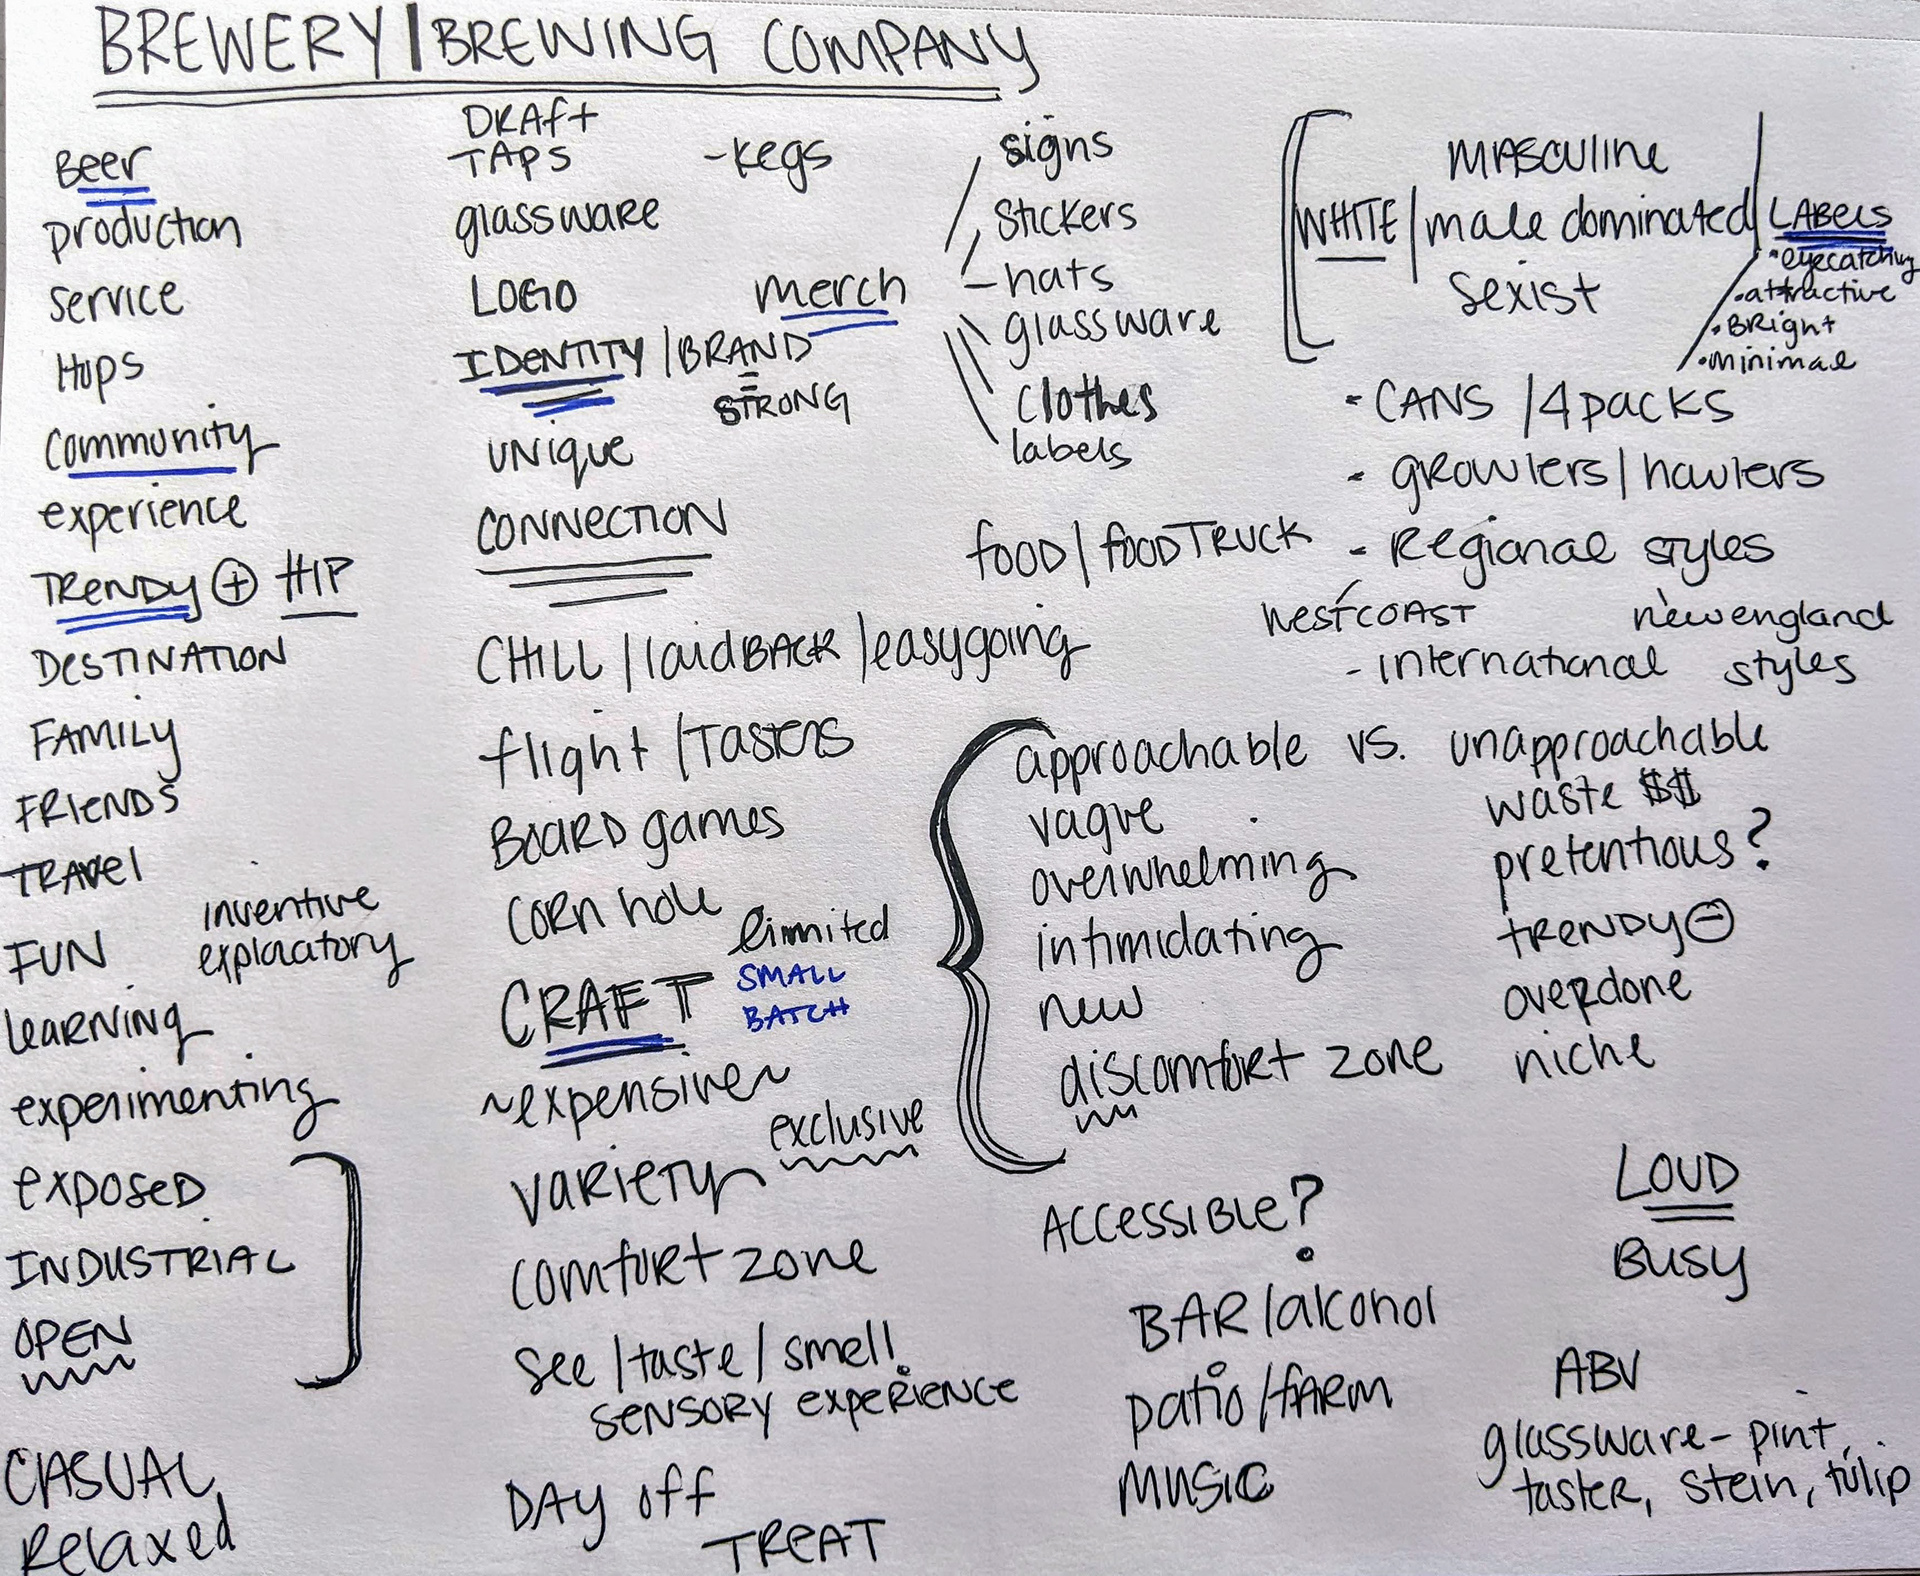 BREWERY | BREWING COMPANY
Beer
production
service
Hops
community
experience
TRENDY ⊕ HIP
DESTINATION
FAMILY
FRIENDS
TRAVEl
FUN
inventive
exploratory
learning
experimenting
exposed
INDUSTRIAL
OPEN
CASUAL
Relaxed
DRAft
TAPS
-kegs
glassware
LOGO
merch
IDENTITY / BRAND
STRONG
UNIQUE
CONNECTION
CHILL / laidBACK / easygoing
flight / TASTERS
BOARD games
CORN hole
limited
CRAFT
SMALL
BATCH
~expensive~
exclusive
VARIETY
comfort zone
see / taste / smell
SENSORY EXPERIENCE
DAY off
TREAT
signs
stickers
hats
glassware
clothes
labels
food / foodTRUCK
MASCULINE
WHITE / male dominated
sexist
LABELS
• eyecatching
• attractive
• BRight
• minimal
- CANS / 4 packs
- growlers / howlers
- Regional styles
westcoast
new england
- international styles
approachable vs. unapproachable
vague
overwhelming
intimidating
new
discomfort zone
waste $$
pretentious?
TRENDY ⊖
overdone
niche
ACCESSIBLE?
BAR / alcohol
patio / fARM
MUSIC
LOUD
BUSY
ABV
glassware - pint,
taster, stein, tulip